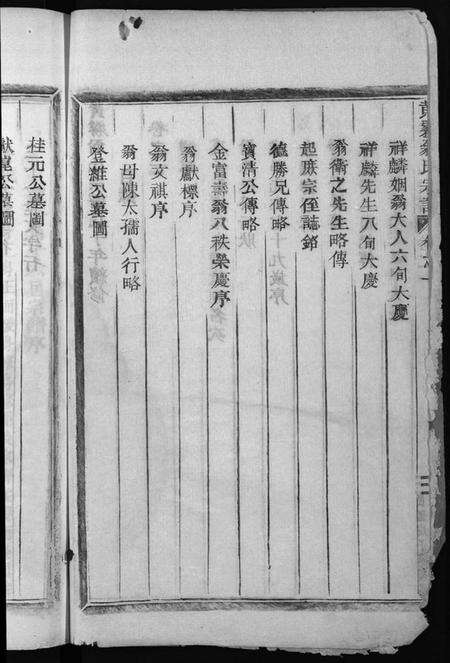 祥麟姻翁大人六旬大慶
祥麟先生八旬大慶
翁衛之先生略傳
起庶宗侄誌銘
德勝兄傳略
寶清公傳略
金富壽翁八秩榮慶序
翁獻標序
翁文祺序
翁母陳太孺人行略
登雑公墓圖
桂元公墓圖
公墓圖